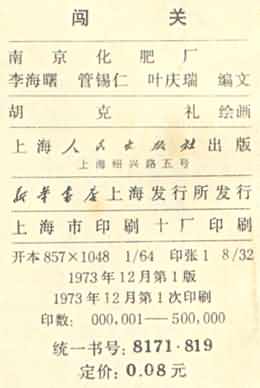 闯 关
南京化肥厂
李海曙 管锡仁 叶庆瑞 编文
胡克礼 绘画
上海人民出版社出版
上海绍兴路五号
新华书店上海发行所发行
上海市印刷十厂印刷
开本 857×1048 1/64 印张 1 8/32
1973年12月第1版
1973年12月第1次印刷
印数: 000,001——500,000
统一书号: 8171·819
定价: 0.08元